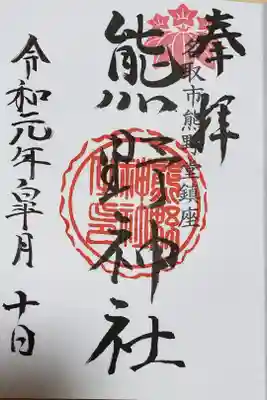 奉拝
名取市熊野堂鎮座
熊野神社
令和元年皐月 十日